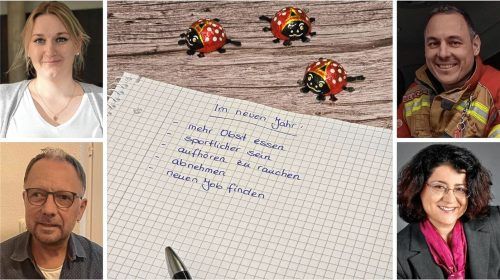 Im neuen Jahr:
- mehr Obst essen
- sportlicher sein
- aufhören zu rauchen
- abnehmen
- neuen Job finden